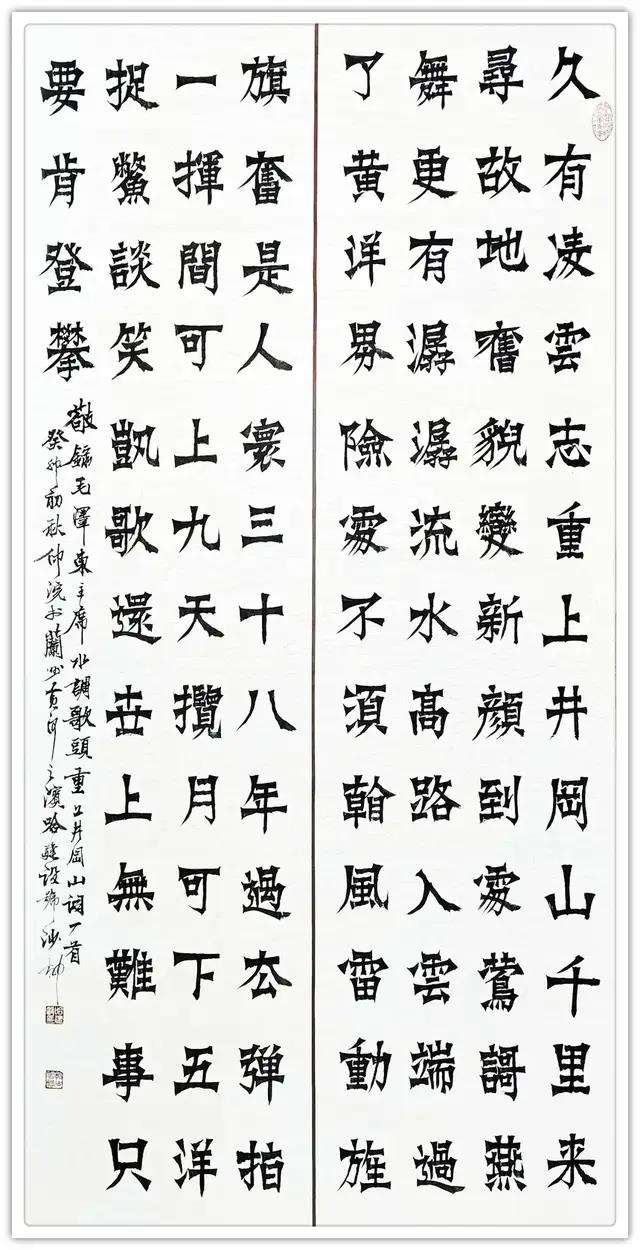 久有凌雲志重上井岡山千里来
尋故地舊貌變新顔到處鶯謌燕
舞更有潺潺流水高路入雲端過
了黄洋界險處不須看風雷動旌
旗奮是人寰三十八年過去弹指
一揮間可上九天攬月可下五洋
捉鱉談笑凱歌還世上無難事只
要肯登攀
敬録毛澤東主席水調歌頭重上井岡山詞一首
癸卯初秋仲浣书蘭州黄河之濱